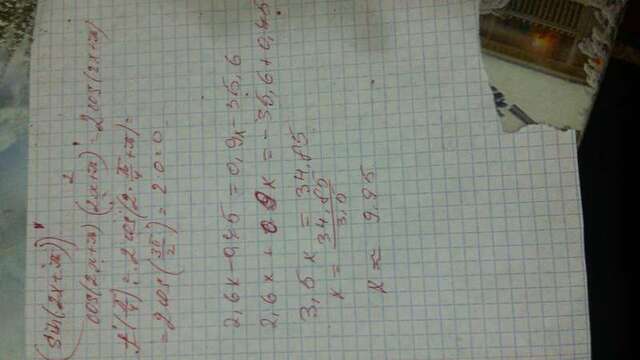 (sin(2x+π))'
cos(2x+π)(2x+π)' = 2cos(2x+π)
f'(π/4) = 2cos(2·π/4+π) =
= 2cos(3π/2) = 2·0=0
2,6x-0,75 = 0,9x-35,6
2,6x + 0.9x = -35,6+0,75
3,5x = 34,85
x = 34,85/3,5
x = 9.95